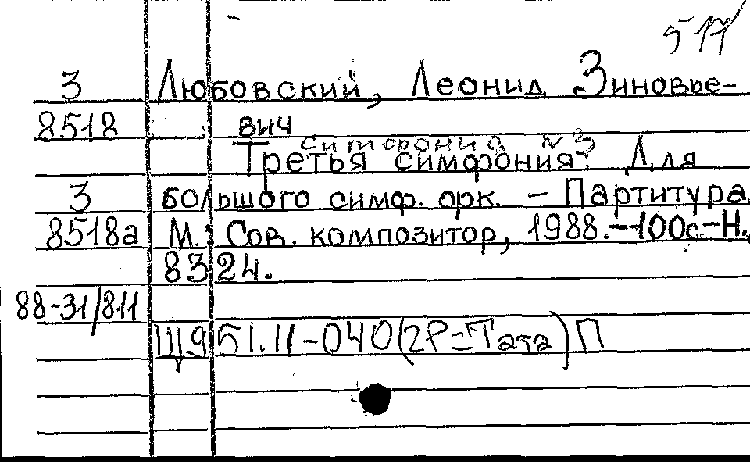 517
3 Любовский, Леонид Зиновье-
8518 вич
Симфония №3
Третья симфония. Для
3 большого симф. орк. – Партитура.
8518а М.: Сов. композитор, 1988.–100с–Н.
8324.
88-31/811
Щ951.11-040(2Р=Тата)П